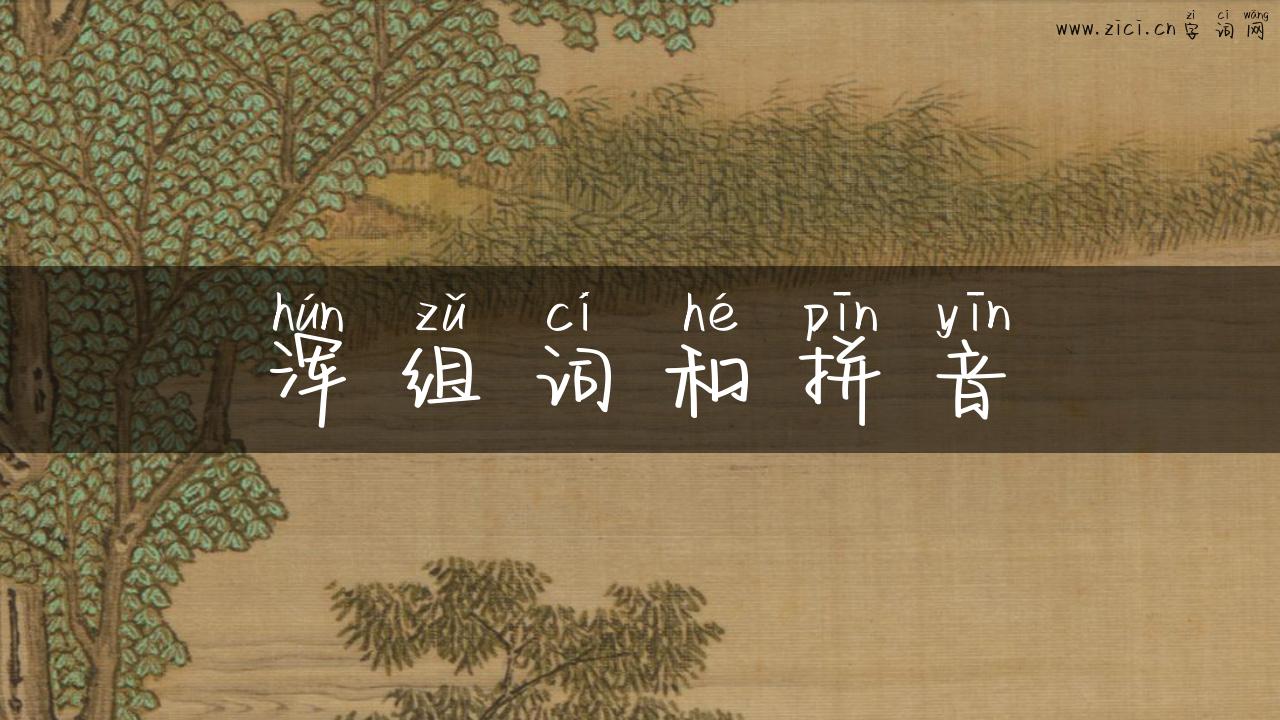 zì cí wǎng
www.zici.cn字词网
hún zǔ cí hé pīn yīn
浑组词和拼音